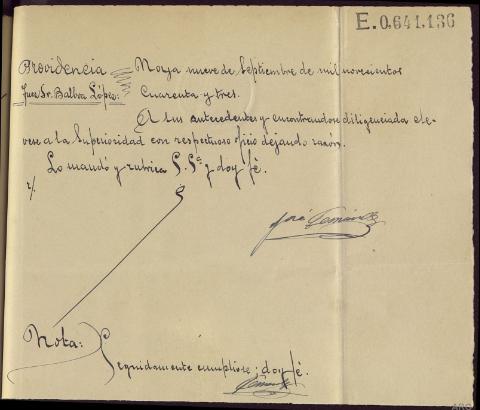 E.0,641,136
Providencia
Juez Sr. Balboa López:
Noya nueve de Septiembre de mil novecientos
Cuarenta y tres.
A sus antecedentes y encontrandose diligenciada ele-
vese a la Superioridad con respetuoso oficio dejando razón.
Lo mandó y rubrica S. Sª y doy fé.
José
Nota:
Seguidamente cumpliose; doy fé.